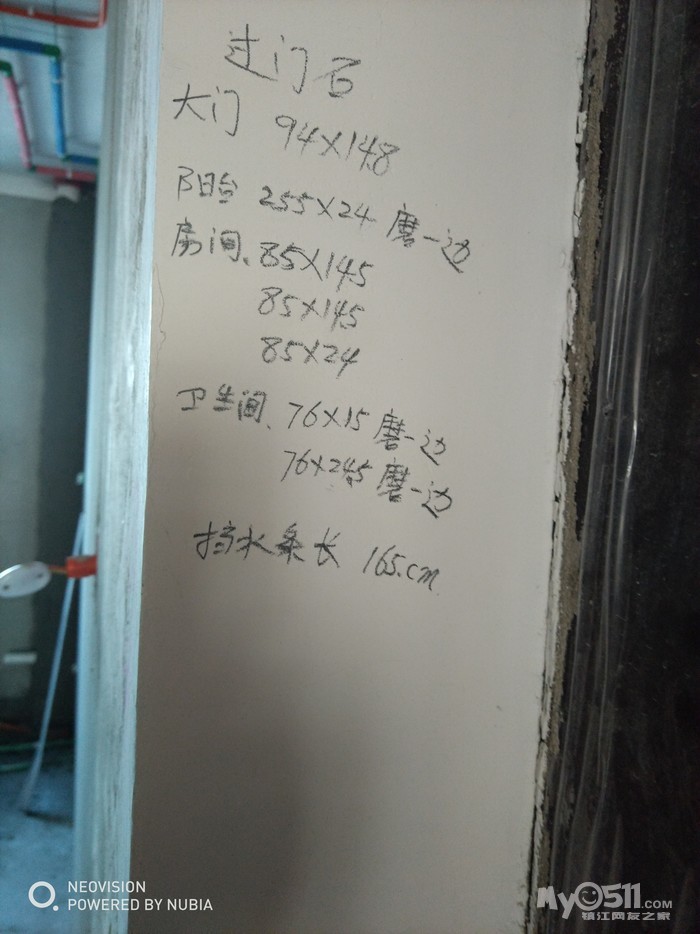 过门石
大门 94×148
阳台 255×24 磨一边
房间、85×145
85×145
85×24
卫生间、76×15 磨一边
76×245 磨一边
挡水条长 165.cm
NEOVISION
POWERED BY NUBIA
My0511.COM
镇江网友之家